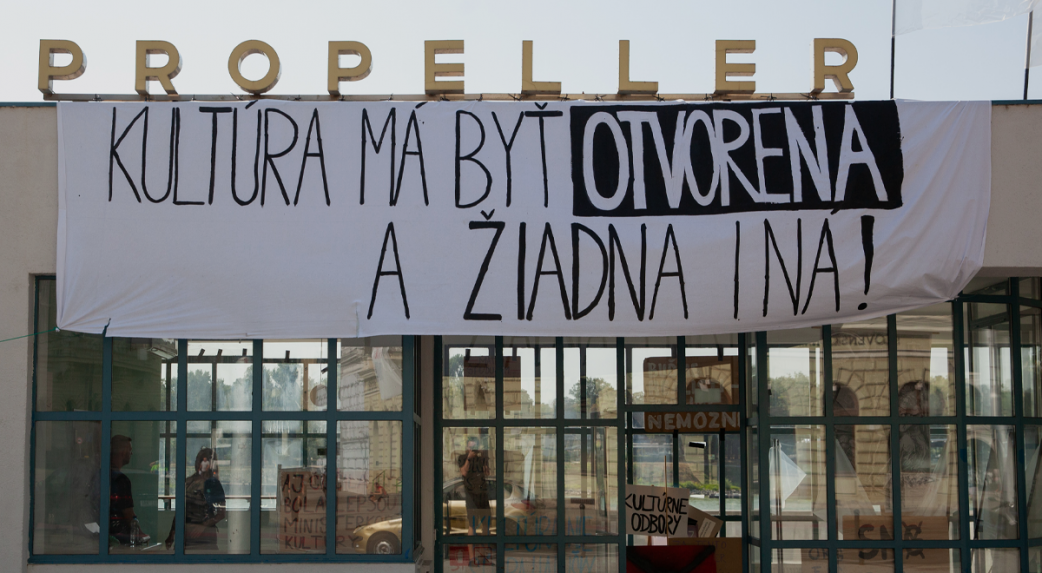 PROPELLER
KULTÚRA MÁ BYŤ OTVORENÁ
A ŽIADNA INÁ!
NEMOŽN
KULTÚRNE
ODBORY
AJ
MINI
KULTÚRY